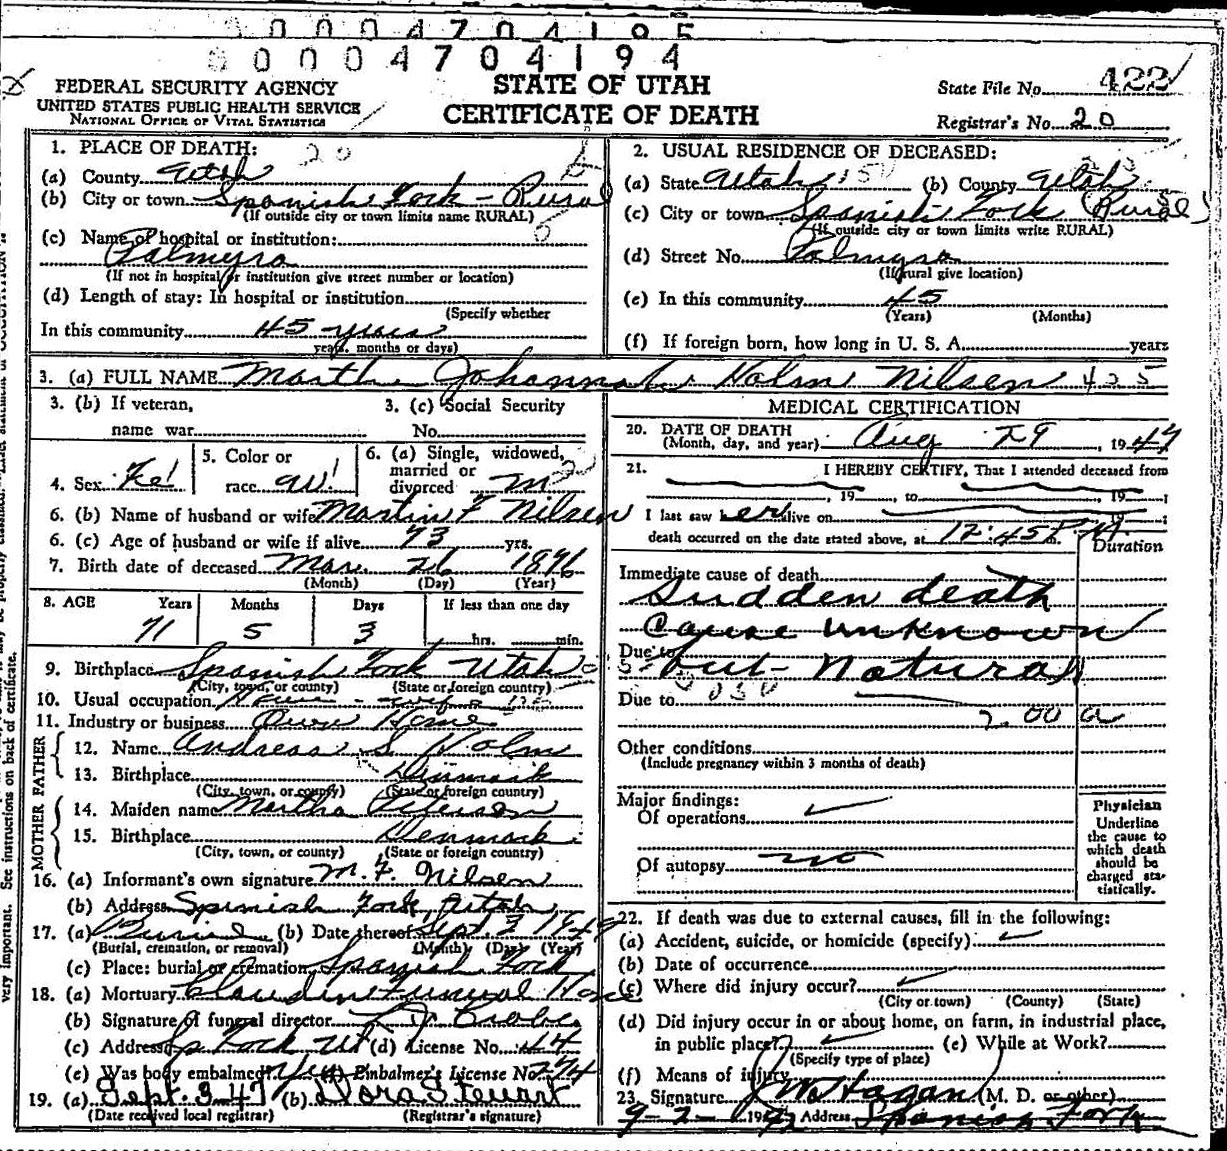 0004704195
0004704194
FEDERAL SECURITY AGENCY
UNITED STATES PUBLIC HEALTH SERVICE
NATIONAL OFFICE OF VITAL STATISTICS
STATE OF UTAH
CERTIFICATE OF DEATH
State File No. 422
Registrar's No. 20
1. PLACE OF DEATH: 20
(a) County Utah
(b) City or town Spanish Fork - Rural
(If outside city or town limits name RURAL)
(c) Name of hospital or institution:
Palmyra
(If not in hospital or institution give street number or location)
(d) Length of stay: In hospital or institution
(Specify whether
In this community 45 years
years, months or days)
2. USUAL RESIDENCE OF DECEASED:
(a) State Utah (b) County Utah
(c) City or town Spanish Fork (Rural)
(If outside city or town limits write RURAL)
(d) Street No. Palmyra
(If rural give location)
(e) In this community 45
(Years) (Months)
(f) If foreign born, how long in U. S. A. years
3. (a) FULL NAME Martha Johannah Holm Nilsen 425
3. (b) If veteran,
name war
3. (c) Social Security
No.
4. Sex Fe
5. Color or
race W
6. (a) Single, widowed,
married or
divorced M
6. (b) Name of husband or wife Martin F Nilsen
6. (c) Age of husband or wife if alive 73 yrs.
7. Birth date of deceased Mar. 26 1876
(Month) (Day) (Year)
8. AGE Years Months Days If less than one day
71 5 3 hrs. min.
9. Birthplace Spanish Fork Utah
(City, town, or county) (State or foreign country)
10. Usual occupation House - wife
11. Industry or business Own Home
FATHER
12. Name Andreas S Holm
13. Birthplace Denmark
(City, town, or county) (State or foreign country)
MOTHER
14. Maiden name Martha Petersen
15. Birthplace Denmark
(City, town, or county) (State or foreign country)
16. (a) Informant's own signature M. F. Nilsen
(b) Address Spanish Fork, Utah
17. (a) Burial (b) Date thereof Sept. 2 1947
(Burial, cremation, or removal) (Month) (Day) (Year)
(c) Place: burial or cremation Spanish Fork
18. (a) Mortuary Claudin Funeral Home
(b) Signature of funeral director
(c) Address Sp Fork Ut (d) License No. 44
(e) Was body embalmed? Yes (f) Embalmer's License No. 274
19. (a) Sept. 3 47 (b) Dora Stewart
(Date received local registrar) (Registrar's signature)
MEDICAL CERTIFICATION
20. DATE OF DEATH
(Month, day, and year) Aug 29, 1947
21. I HEREBY CERTIFY, That I attended deceased from
, 19 , to , 19 ;
I last saw her alive on 19 ;
death occurred on the date stated above, at 12:45 P. M.
Duration
Immediate cause of death
Sudden death
Cause unknown
Due to but - natural
Due to
200 a
Other conditions
(Include pregnancy within 3 months of death)
Major findings:
Of operations
Of autopsy no
Physician
Underline
the cause to
which death
should be
charged sta-
tistically.
22. If death was due to external causes, fill in the following:
(a) Accident, suicide, or homicide (specify)
(b) Date of occurrence
(c) Where did injury occur?
(City or town) (County) (State)
(d) Did injury occur in or about home, on farm, in industrial place,
in public place? (e) While at Work?
(Specify type of place)
(f) Means of injury
23. Signature Hagan (M. D. or other)
9-2- 1947 Address Spanish Fork
very important. See instructions on back of certificate.